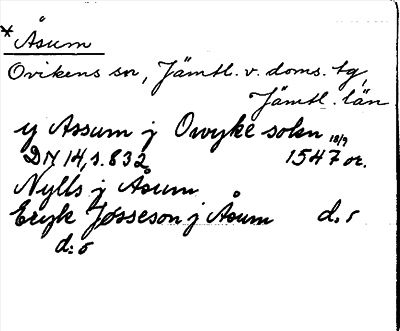 * Åsum
Ovikens sn, Jämtl. v. doms. tg,
Jämtl. län
y Assum j Owyke sokn 18/9
DN 14, s. 832 1547 or.
Nylls j Åsum
Eryk Jösseson j Åsum d:s
d:s